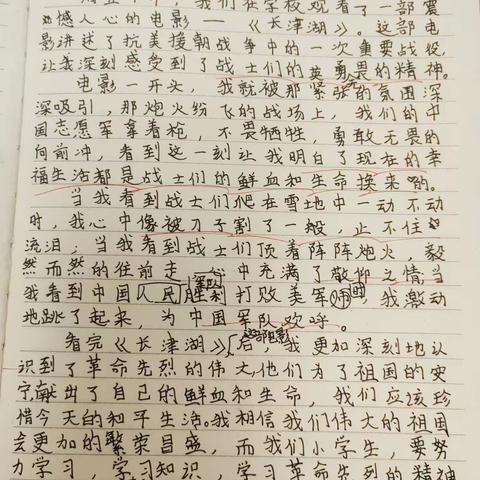 我们在学校观看了一部震
撼人心的电影——《长津湖》。这部电
影讲述了抗美援朝战争中的一次重要战役,
让我深刻感受到了战士们的英勇无畏的精神。
电影一开头,我就被那紧张的氛围深
深吸引,那炮火纷飞的战场上,我们的中
国志愿军拿着枪,不畏牺牲,勇敢无畏的
向前冲,看到这一刻让我明白了现在的幸
福生活都是战士们的鲜血和生命换来的。
当我看到战士们爬在雪地中一动不动
时,我心中像被刀子割了一般,止不住
流泪,当我看到战士们顶着阵阵炮火,毅
然而然的往前走,心中充满了敬仰之情,当
我看到中国人民军队胜利打败美军帝国,我激动
地跳了起来,为中国军队欢呼。
看完《长津湖》这部电影后,我更加深刻地认
识到了革命先烈的伟大,他们为了祖国的安
宁,献出了自己的鲜血和生命,我们应该珍
惜今天的和平生活。我相信我们伟大的祖国
会更加的繁荣昌盛,而我们小学生,要努
力学习,学习知识,学习革命先烈的精神